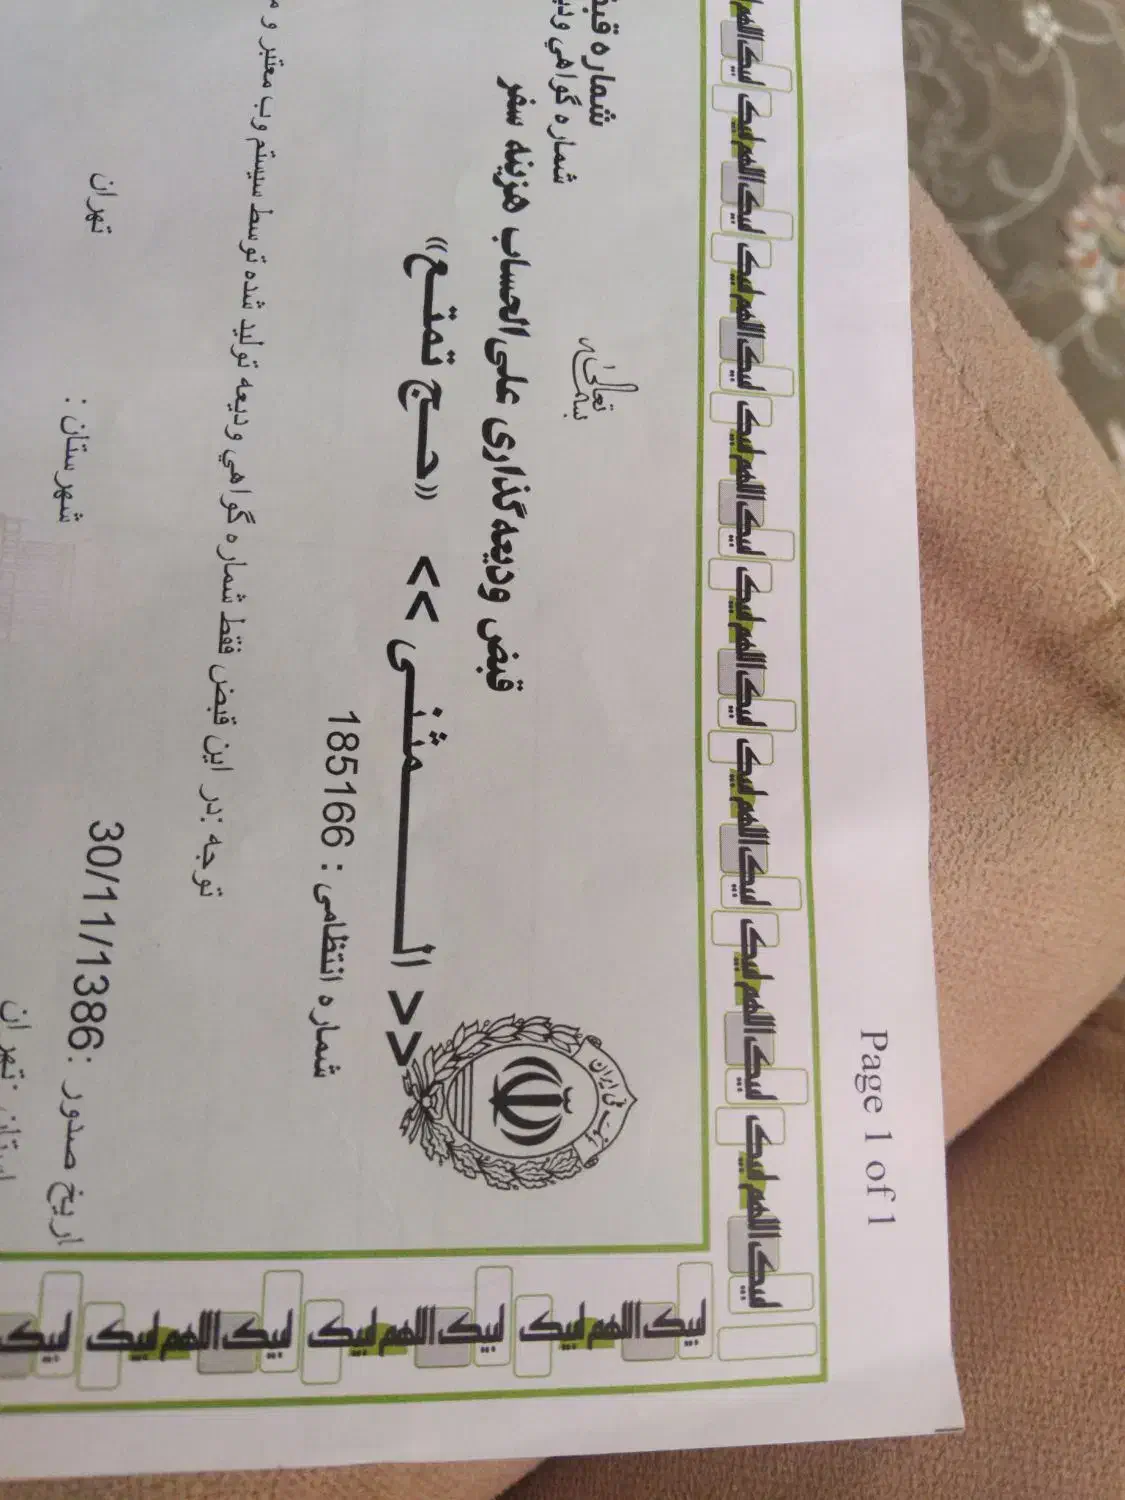 Page 1 of 1
لبیک اللهم لبیک لبیک اللهم لبیک لبیک اللهم لبیک لبیک اللهم لبیک لبیک اللهم لبیک لبیک اللهم لبیک لبیک اللهم لبیک لبیک اللهم لبیک
بسمه تعالی
شماره
شماره گواهي
قبض ودیعه گذاری علی الحساب هزینه سفر
<< المثنی >> «حج تمتع»
شماره انتظامی : 185166
توجه :در این قبض فقط شماره گواهي ودیعه تولید شده توسط سیستم وب معتبر و
اریخ صدور :30/11/1386
شهرستان :
تهران
استان :تهران
لبیک اللهم لبیک لبیک اللهم لبیک لبیک اللهم لبیک لبیک